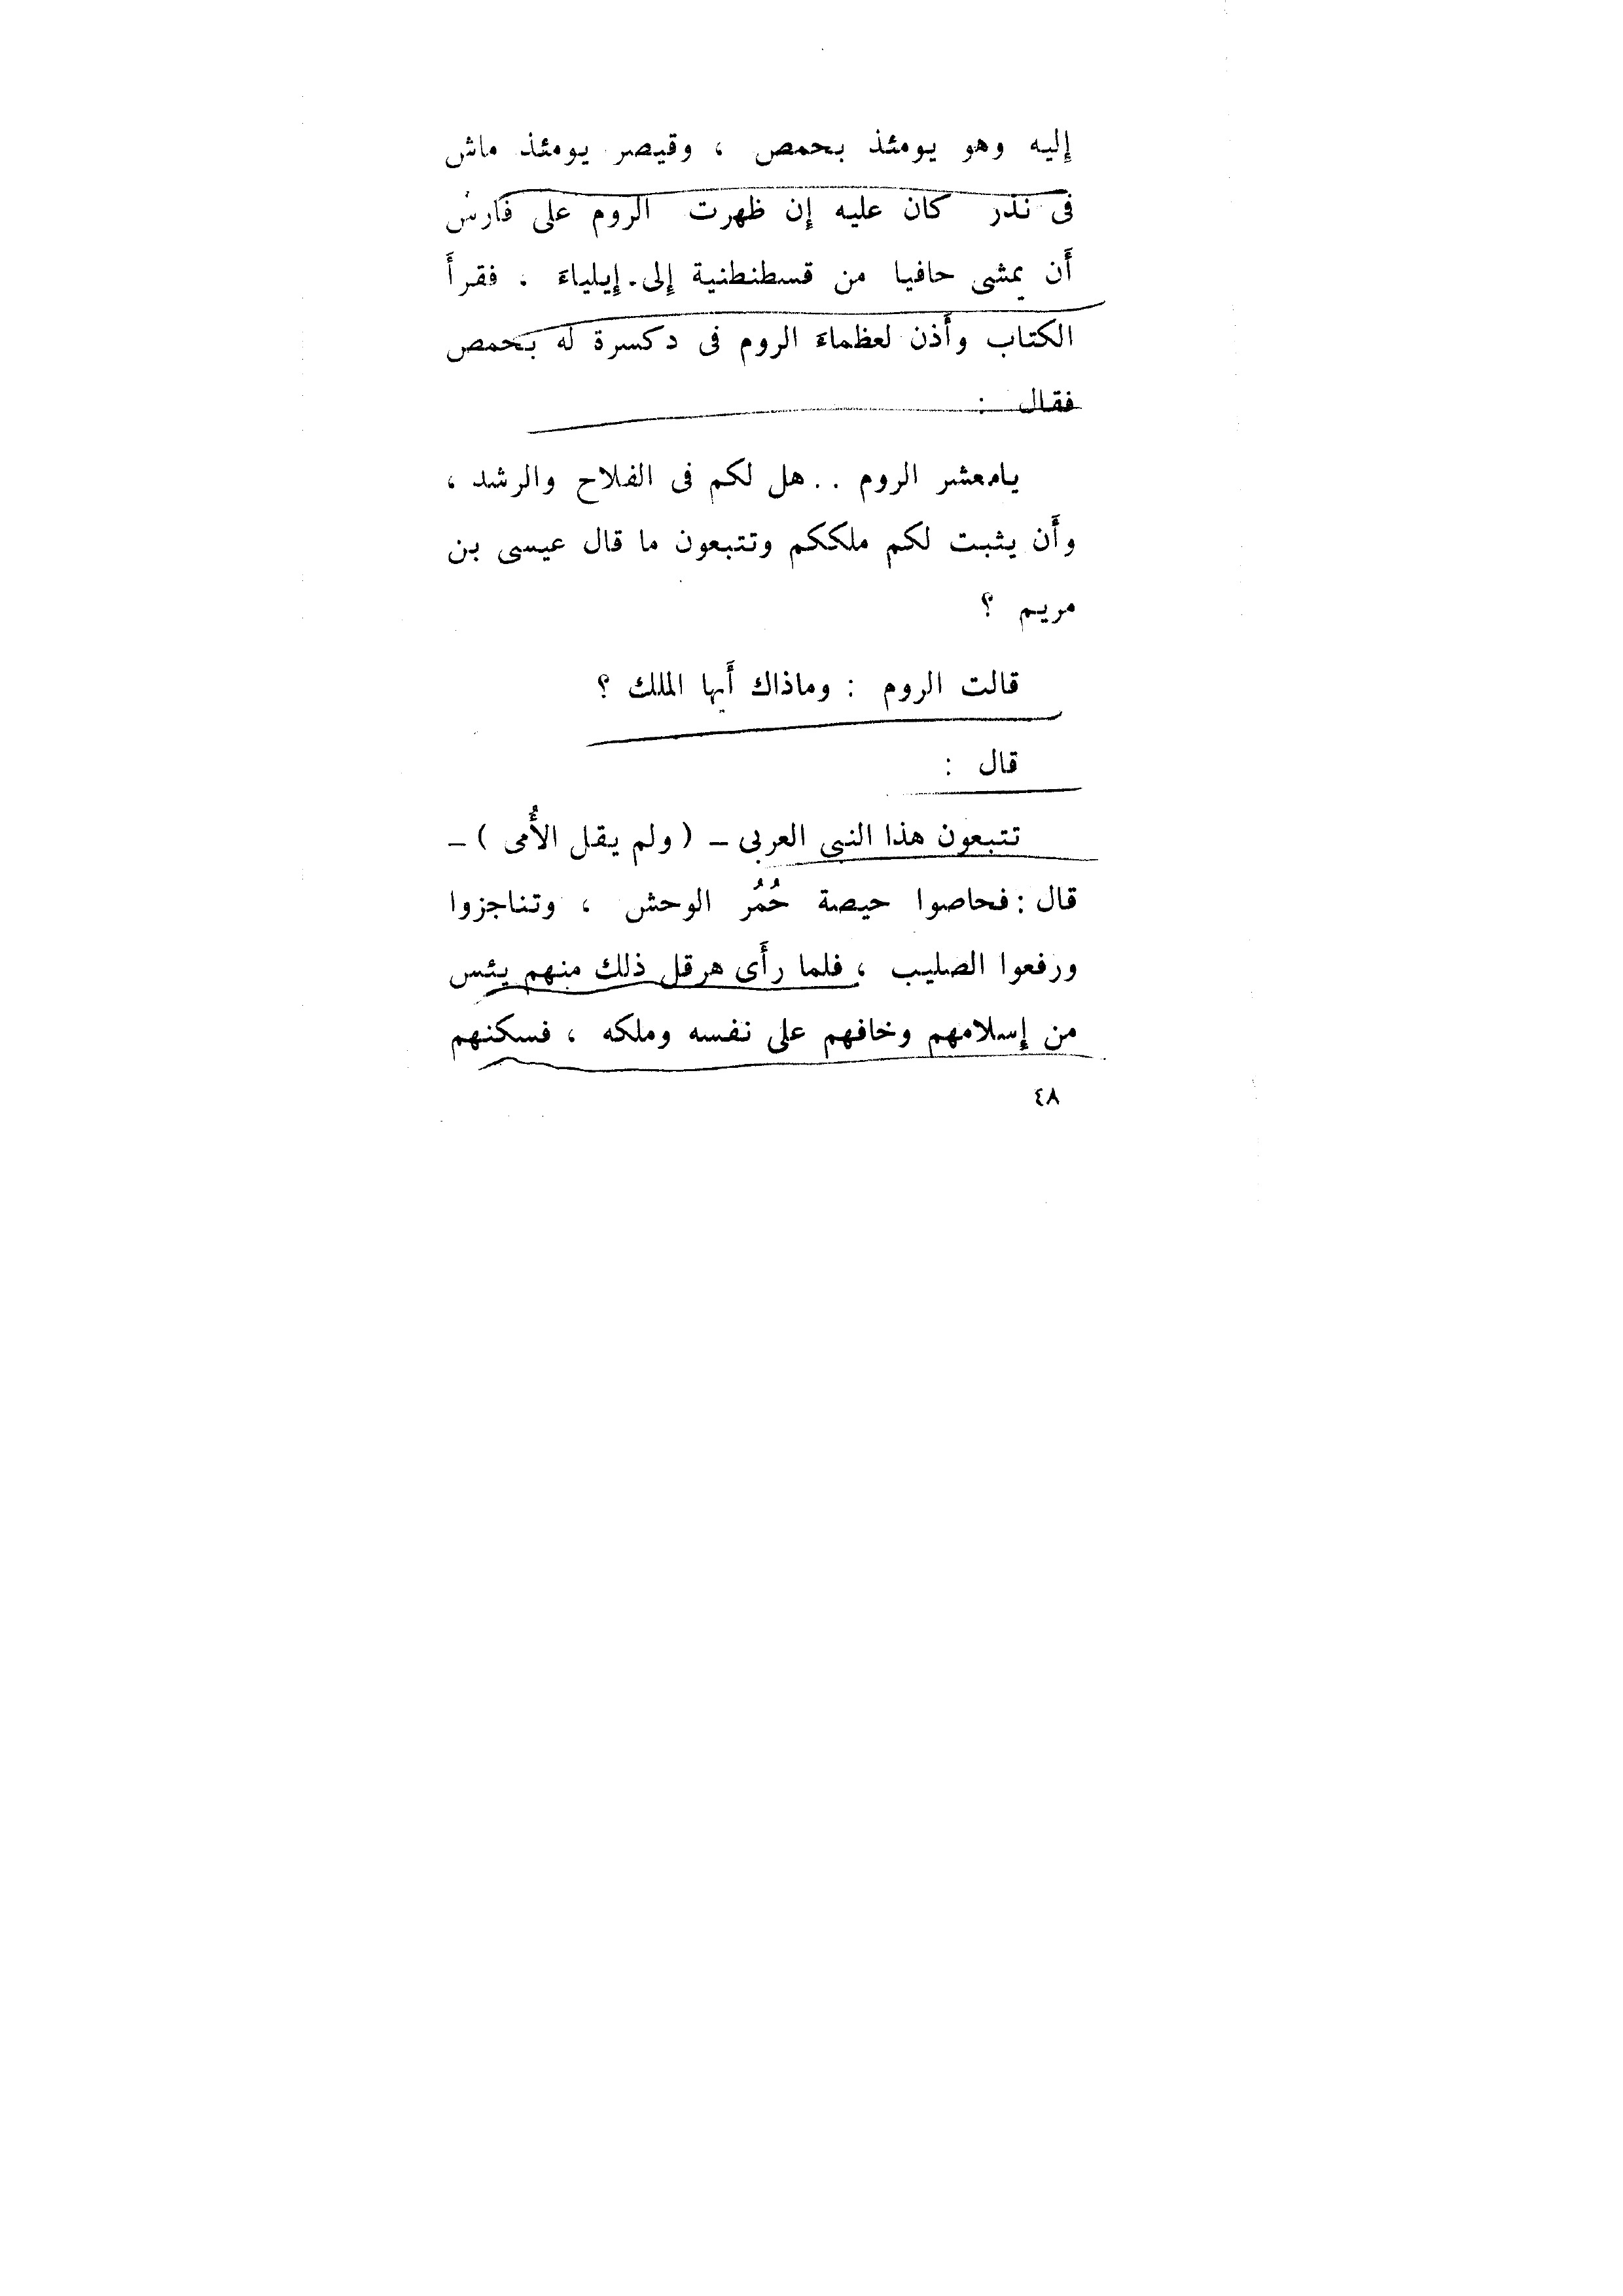 إليه وهو يومئذ بحمص ، وقيصر يومئذ ماش
فى نذر كان عليه إن ظهرت الروم على فارس
أن يمشى حافيا من قسطنطنية إلى إيلياءَ . فقرأَ
الكتاب وأَذن لعظماءَ الروم فى دكسرة له بحمص
فقال :
يامعشر الروم .. هل لكم فى الفلاح والرشد ،
وأَن يثبت لكم ملككم وتتبعون ما قال عيسى بن
مريم ؟
قالت الروم : وماذاك أَيها الملك ؟
قال :
تتبعون هذا النبى العربى – ( ولم يقل الأُمى ) –
قال : فحاصوا حيصة حُمُر الوحش ، وتناجزوا
ورفعوا الصليب ، فلما رأَى هرقل ذلك منهم يئس
من إسلامهم وخافهم على نفسه وملكه ، فسكنهم
٤٨